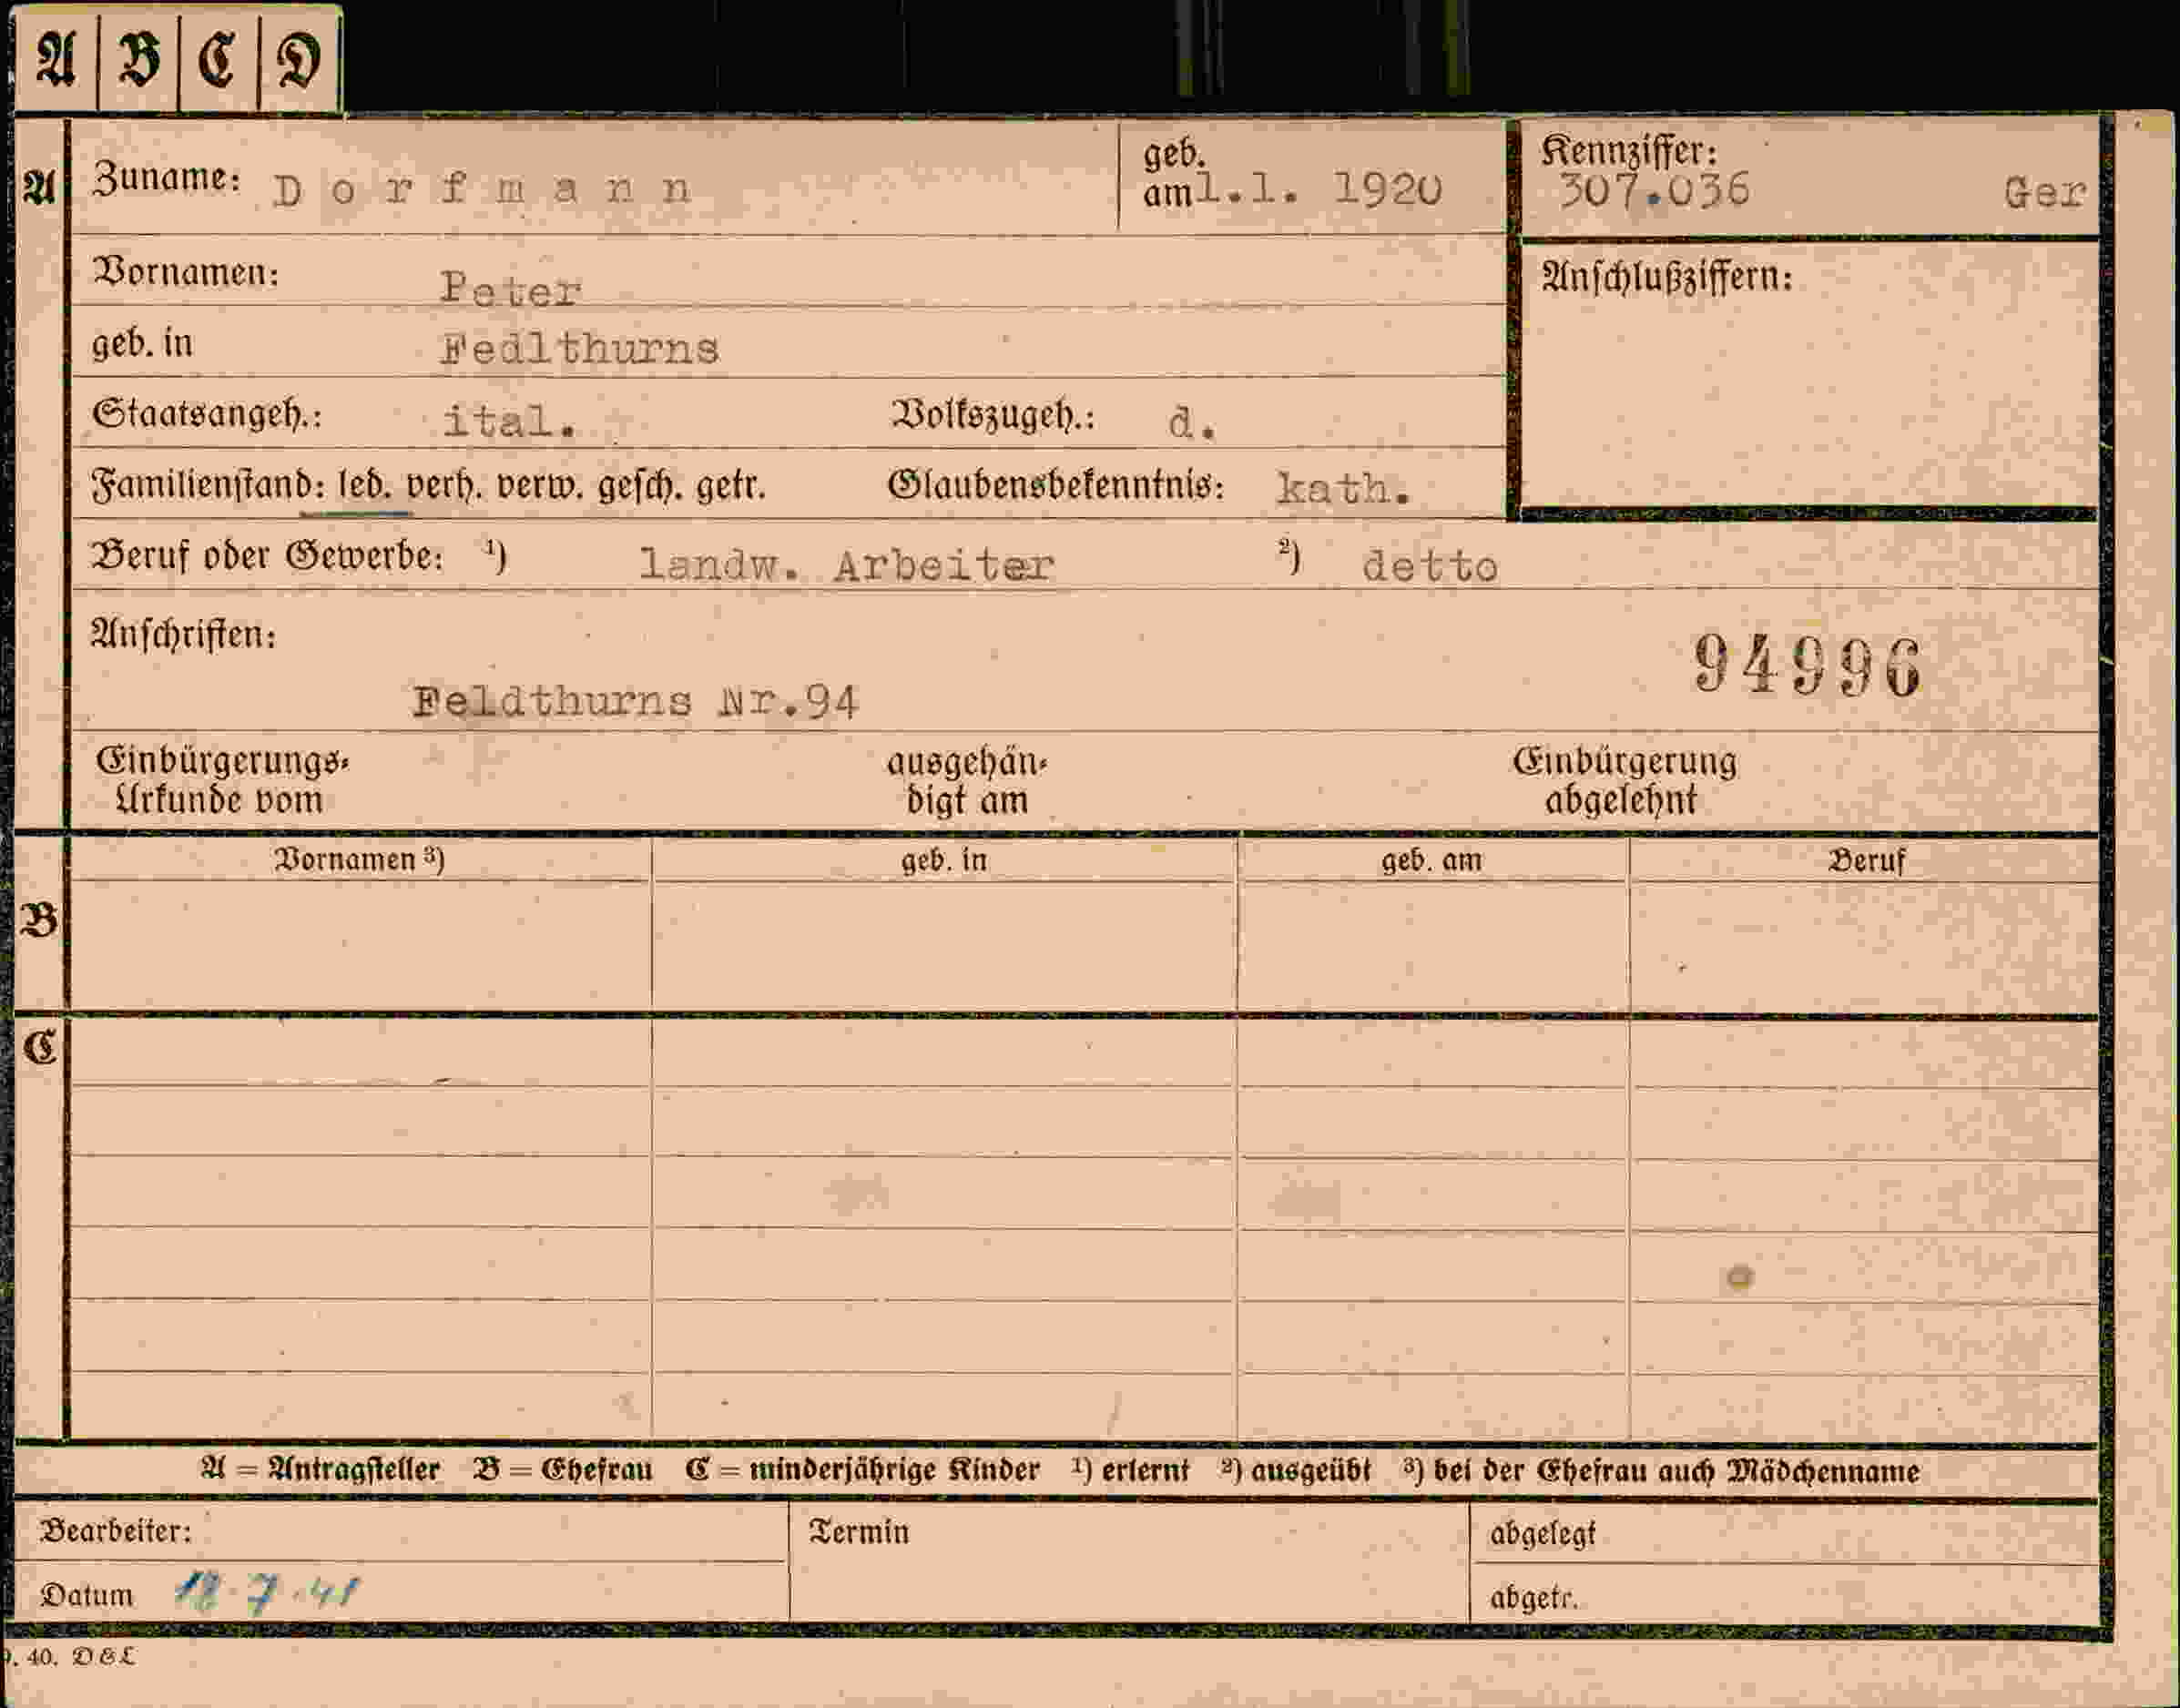 A B C D
A Zuname: Dorfmann geb. am 1.1. 1920 Kennziffer: 307.036 Ger
Vornamen: Peter Anschlußziffern:
geb. in Fedlthurns
Staatsangeh.: ital. Volkszugeh.: d.
Familienstand: led. verh. verw. gesch. getr. Glaubensbekenntnis: kath.
Beruf oder Gewerbe: ¹) landw. Arbeiter ²) detto
Anschriften: 94996
Feldthurns Nr.94
Einbürgerungs- ausgehän- Einbürgerung
Urkunde vom digt am abgelehnt
Vornamen ³) geb. in geb. am Beruf
B
C
A = Antragsteller B = Ehefrau C = minderjährige Kinder ¹) erlernt ²) ausgeübt ³) bei der Ehefrau auch Mädchenname
Bearbeiter: Termin abgelegt
Datum 18.7.41 abgetr.
40. D & L